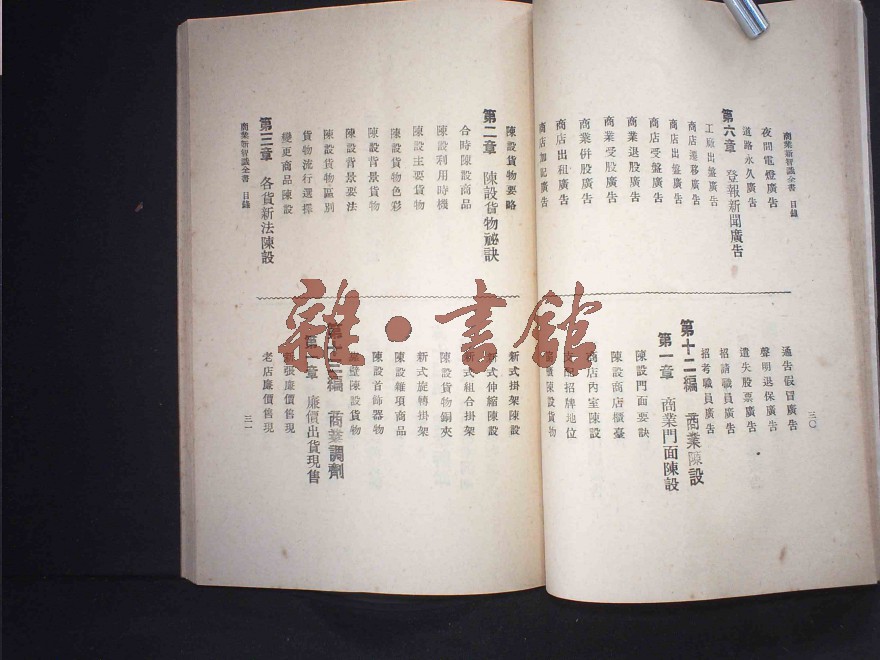 商業新智識全書 目錄
三〇
夜間電燈廣告
道路永久廣告
第六章 登報新聞廣告
工廠出盤廣告
商店遷移廣告
商店出盤廣告
商店受盤廣告
商業退股廣告
商業受股廣告
商業併股廣告
商店出租廣告
商店加記廣告
通告假冒廣告
聲明退保廣告
遺失股票廣告
招請職員廣告
招考職員廣告
第十二編 商業陳設
第一章 商業門面陳設
陳設門面要訣
陳設商店櫃臺
商店內室陳設
支配招牌地位
櫥櫃陳設貨物
陳設貨物要略
第二章 陳設貨物祕訣
合時陳設商品
陳設利用時機
陳設主要貨物
陳設貨物色彩
陳設背景貨物
陳設背景要法
陳設貨物區別
貨物流行選擇
變更商品陳設
第三章 各貨新法陳設
新式掛架陳設
新式伸縮陳設
新式組合掛架
陳設貨物銅夾
新式旋轉掛架
陳設雜項商品
陳設首飾器物
牆壁陳設貨物
第十三編 商業調劑
第一章 廉價出貨現售
新張廉價售現
老店廉價售現
商業新智識全書 目錄
三一
雜·書館